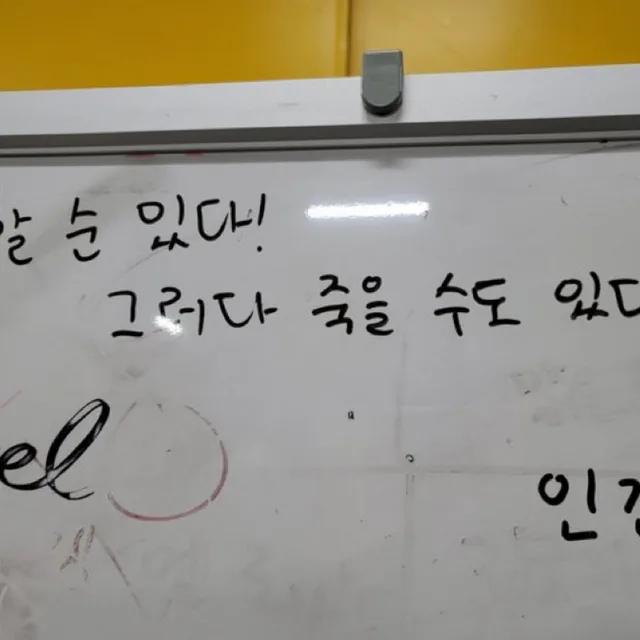 알 순 있다!
그러다 죽을 수도 있다
el
인간